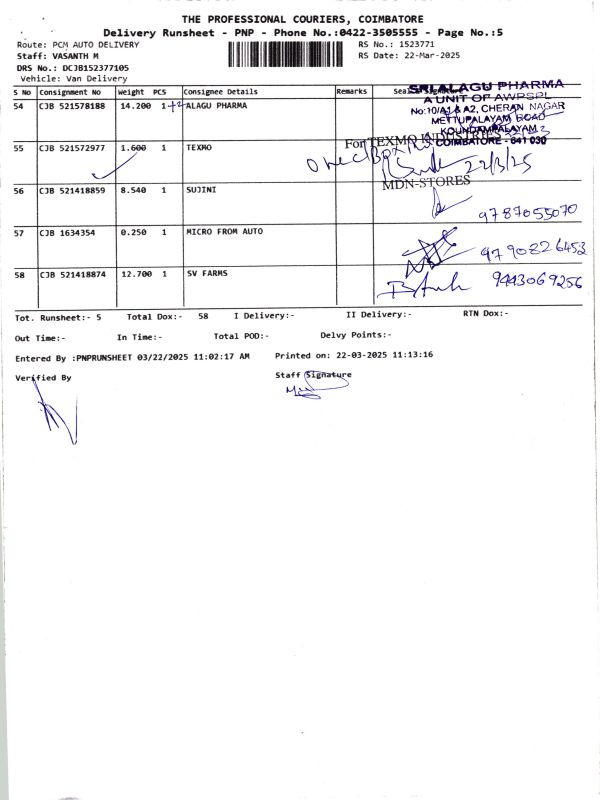 THE PROFESSIONAL COURIERS, COIMBATORE
Delivery Runsheet - PNP - Phone No.:0422-3505555 - Page No.:5
Route: PCM AUTO DELIVERY
RS No.: 1523771
Staff: VASANTH M
RS Date: 22-Mar-2025
DRS No.: DCJB152377105
Vehicle: Van Delivery
S No Consignment No Weight PCS Consignee Details Remarks Seal & Signature
54 CJB 521578188 14.200 1 +2 ALAGU PHARMA
SRI ALAGU PHARMA
A UNIT OF AWPSPL
No:10/A1 & A2, CHERAN NAGAR
METTUPALAYAM ROAD
KOUNDAMPALAYAM
COIMBATORE - 641 030
55 CJB 521572977 1.600 1 TEXMO
For TEXMO INDUSTRIES
One (Box)
22/3/25
MDN-STORES
56 CJB 521418859 8.540 1 SUJINI
9787055070
57 CJB 1634354 0.250 1 MICRO FROM AUTO
9790826452
58 CJB 521418874 12.700 1 SV FARMS
9443069256
Tot. Runsheet:- 5 Total Dox:- 58 I Delivery:- II Delivery:- RTN Dox:-
Out Time:- In Time:- Total POD:- Delvy Points:-
Entered By :PNPRUNSHEET 03/22/2025 11:02:17 AM Printed on: 22-03-2025 11:13:16
Verified By Staff Signature